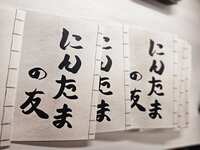 にんたま
の友
にんたま
にんたま
の友